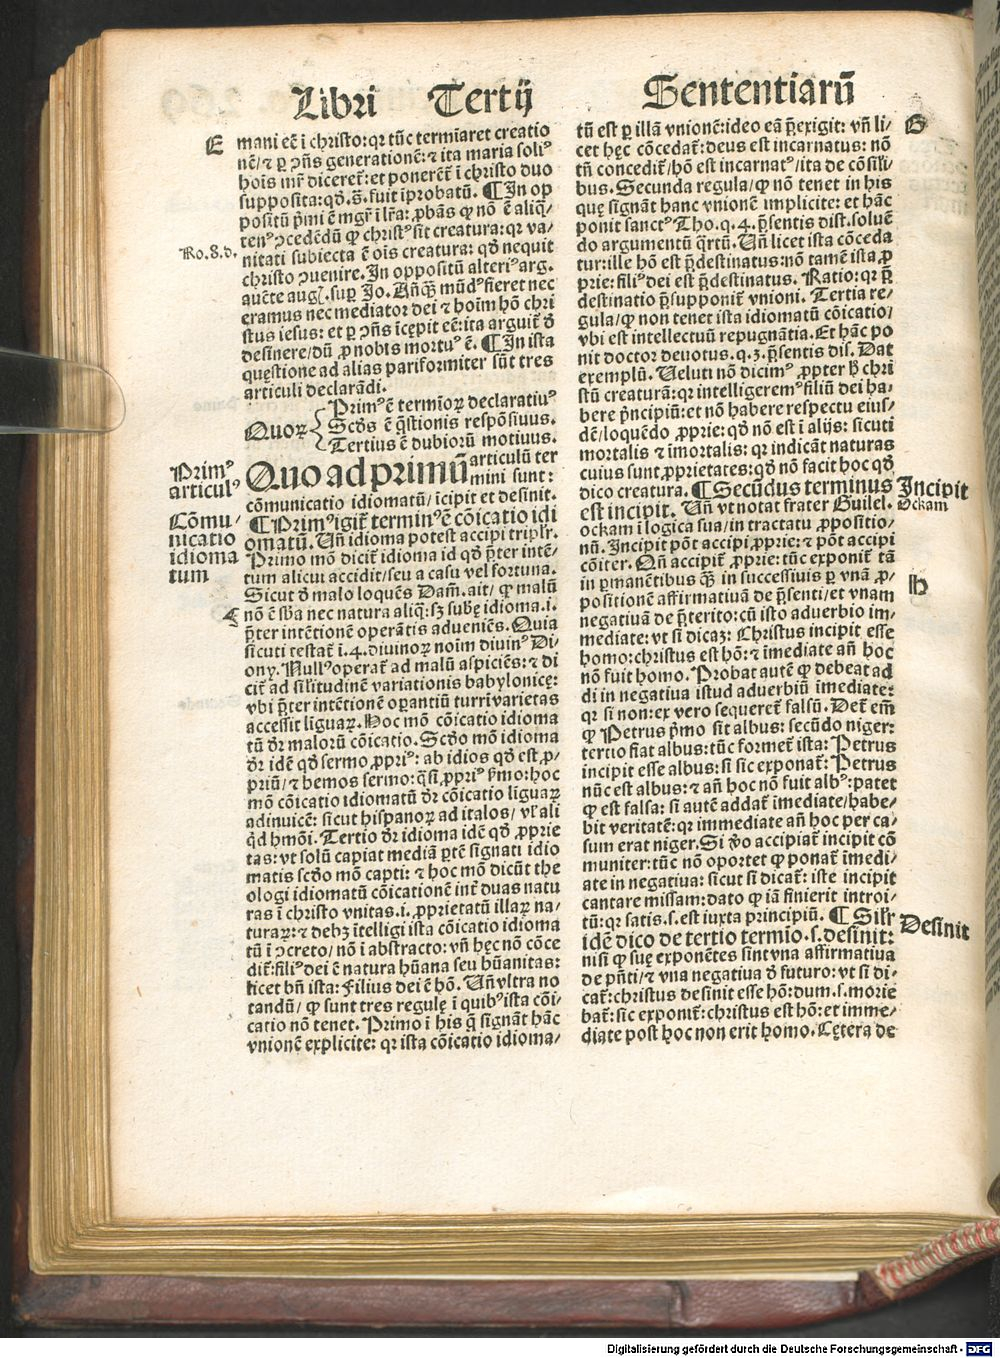 Libri Tertij
Sententiarū
E
mani eē i christo: qr tūc termiaret creatio
nē/ ⁊ ꝑ ↄn̄s generationē: ⁊ ita maria soliꝰ
hoīs mr̄ diceret̄: et poneret̄ i christo duo
supposita: qd̓.s̄. fuit iprobatū. ¶ In op
positū pͥmi ē mgr̄ i lr̄a: ꝓbās ꝙ nō ē aliq̄/
tenꝰ ↄcedēdū ꝙ christꝰ sit creatura: qr va/
Ro.8.d.
nitati subiecta ē ois creatura: qd̓ nequit
christo ↄuenire. In oppositū alteriꝰ arg.
aucte aug.̄ suꝑ Jo. Anq̄ꝫ mūdꝰ fieret nec
eramus nec mediator dei ⁊ hoīm hō chri
stus iesus: et ꝑ ↄn̄s icepit eē: ita arguit̄ d̓
desinere/ dū ꝓ nobis mortuꝰ ē. ¶ In ista
quęstione ad alias pariformiter sūt tres
articuli declarādi.
Quoꝝ
Primꝰ ē termioꝝ declaratiuꝰ
Scd̓s ē q̄stionis respōsiuus.
Tertius ē dubiorū motiuus.
Primꝰ
articulꝰ
Quo ad primū articulū ter
mini sunt:
cōmunicatio idiomatū/ icipit et desinit.
Cōmu/
nicatio
idioma
tum
¶ Primꝰ igit̄ terminꝰ ē cōicatio idi
omatū. Un̄ idioma potest accipi triplr̄.
Primo mō dicit̄ idioma id qd̓ p̄ter intē/
tum alicui accidit/ seu a casu vel fortuna.
Sicut d̓ malo loquēs Dam̄. ait/ ꝙ malū
F
nō ē sba nec natura aliq̄: sꝫ subę idioma.i.
p̄ter intētionē operātis adueniēs. Quia
sicuti testat̄ i.4. diuinoꝝ noīm diuinꝰ Di/
ony. Nullꝰ operat̄ ad malū aspiciēs: ⁊ di
cit̄ ad sil̄itudinē variationis babylonicę:
vbi p̄ter intētionē operantiū turri varietas
accessit liguaꝝ. Hoc mō cōicatio idioma
tū dr̄ malorū cōicatio. Scd̓o mō idioma
dr̄ idē qd̓ sermo ꝓpriꝰ: ab idios qd̓ est ꝓ/
priū/ ⁊ hemos sermo: q̄si ꝓpriꝰ s̓mo: hoc
mō cōicatio idiomatū dr̄ cōicatio liguaꝝ
adinuicē: sicut hispanoꝝ ad italos/ vl̓ ali
q̓d hmōi. Tertio dr̄ idioma idē qd̓ ꝓprie
tas: vt solū capiat mediā ꝑtē signati idio
matis scd̓o mō capti: ⁊ hoc mō dicūt the
ologi idiomatū cōicationē int̄ duas natu
ras i christo vnitas.i. ꝓprietatū illaꝝ na/
turaꝝ: ⁊ debꝫ itelligi ista cōicatio idioma
tū i ↄcreto/ nō i abstracto: vn̄ hęc nō cōce
dit̄: filiꝰ dei ē natura hūana seu hūanitas:
licet bn̄ ista: Filius dei ē hō. Un̄ vltra no
tandū/ ꝙ sunt tres regulę i quibꝰ ista cōi/
catio nō tenet. Primo i his q̄ signāt hāc
vnionē explicite: qr ista cōicatio idioma/
G
tū est ꝑ illā vnionē: ideo eā p̄exigit: vn̄ li/
cet hęc cōcedat̄: deus est incarnatus: nō
tn̄ concedit̄/ hō est incarnatꝰ/ ita de cōsil̄i
bus. Secunda regula/ ꝙ nō tenet in his
quę signāt hanc vnionē implicite: et hāc
ponit sanctꝰ Tho. q.4. p̄sentis dist. soluē
do argumētū q̄rtū. Un̄ licet ista cōceda
tur: ille hō est p̄destinatus: nō tamē ista ꝓ
prie: filiꝰ dei est p̄destinatus. Ratio: qr p̄
destinatio p̄supponit̄ vnioni. Tertia re/
gula/ ꝙ non tenet ista idiomatū cōicatio/
vbi est intellectuū repugnātia. Et hāc po
nit doctor deuotus. q.3. p̄sentis dis. Dat
exemplū. Veluti nō dicimꝰ ꝓpter h̄ chri
stū creaturā: qr intelligeremꝰ filiū dei ha/
bere pͥncipiū: et nō habere respectu eius/
dē/ loquēdo ꝓprie: qd̓ nō est i alijs: sicuti
mortalis ⁊ imortalis: qr indicāt naturas
cuius sunt ꝓprietates: qd̓ nō facit hoc qd̓
Incipit
Ockam
dico creatura. ¶ Secūdus terminus
est incipit. Un̄ vt notat frater Guilel.
ockam i logica sua/ in tractatu ꝓpositio/
nū. Incipit pōt accipi ꝓprie: ⁊ pōt accipi
cōiter. Qn̄ accipit̄ ꝓprie: tūc exponit̄ tā
in ꝑmanētibus q̄ꝫ in successiuis ꝑ vnā ꝓ/
H
positionē affirmatiuā de p̄senti/ et vnam
negatiuā de p̄terito: cū isto aduerbio im/
mediate: vt si dicaꝫ: Christus incipit esse
homo: christus est hō: ⁊ imediate an̄ hoc
nō fuit homo. Probat autē ꝙ debeat ad
di in negatiua istud aduerbiū imediate:
qr si non: ex vero sequeret̄ falsū. Det̄ em̄
ꝙ Petrus pͥmo sit albus: secūdo niger:
tertio fiat albus: tūc formet̄ ista: Petrus
incipit esse albus: si sic exponat̄: Petrus
nūc est albus: ⁊ an̄ hoc nō fuit albꝰ: patet
ꝙ est falsa: si autē addat̄ imediate/ habe/
bit veritatē: qr immediate an̄ hoc per ca/
sum erat niger. Si v̓o accipiat̄ incipit cō
muniter: tūc nō oportet ꝙ ponat̄ imedi/
ate in negatiua: sicut si dicat̄: iste incipit
cantare missam: dato ꝙ iā finierit introi/
tū: qr satis.s. est iuxta principiū. ¶ Silr̄
Desinit
idē dico de tertio termio.s. desinit:
nisi ꝙ suę exponētes sint vna affirmatiua
de pn̄ti/ ⁊ vna negatiua d̓ futuro: vt si di/
cat̄: christus desinit esse hō: dum.s. morie
bat̄: sic exponit̄: christus est hō: et imme/
diate post hoc non erit homo. Cętera de
Digitalisierung gefördert durch die Deutsche Forschungsgemeinschaft - DFG